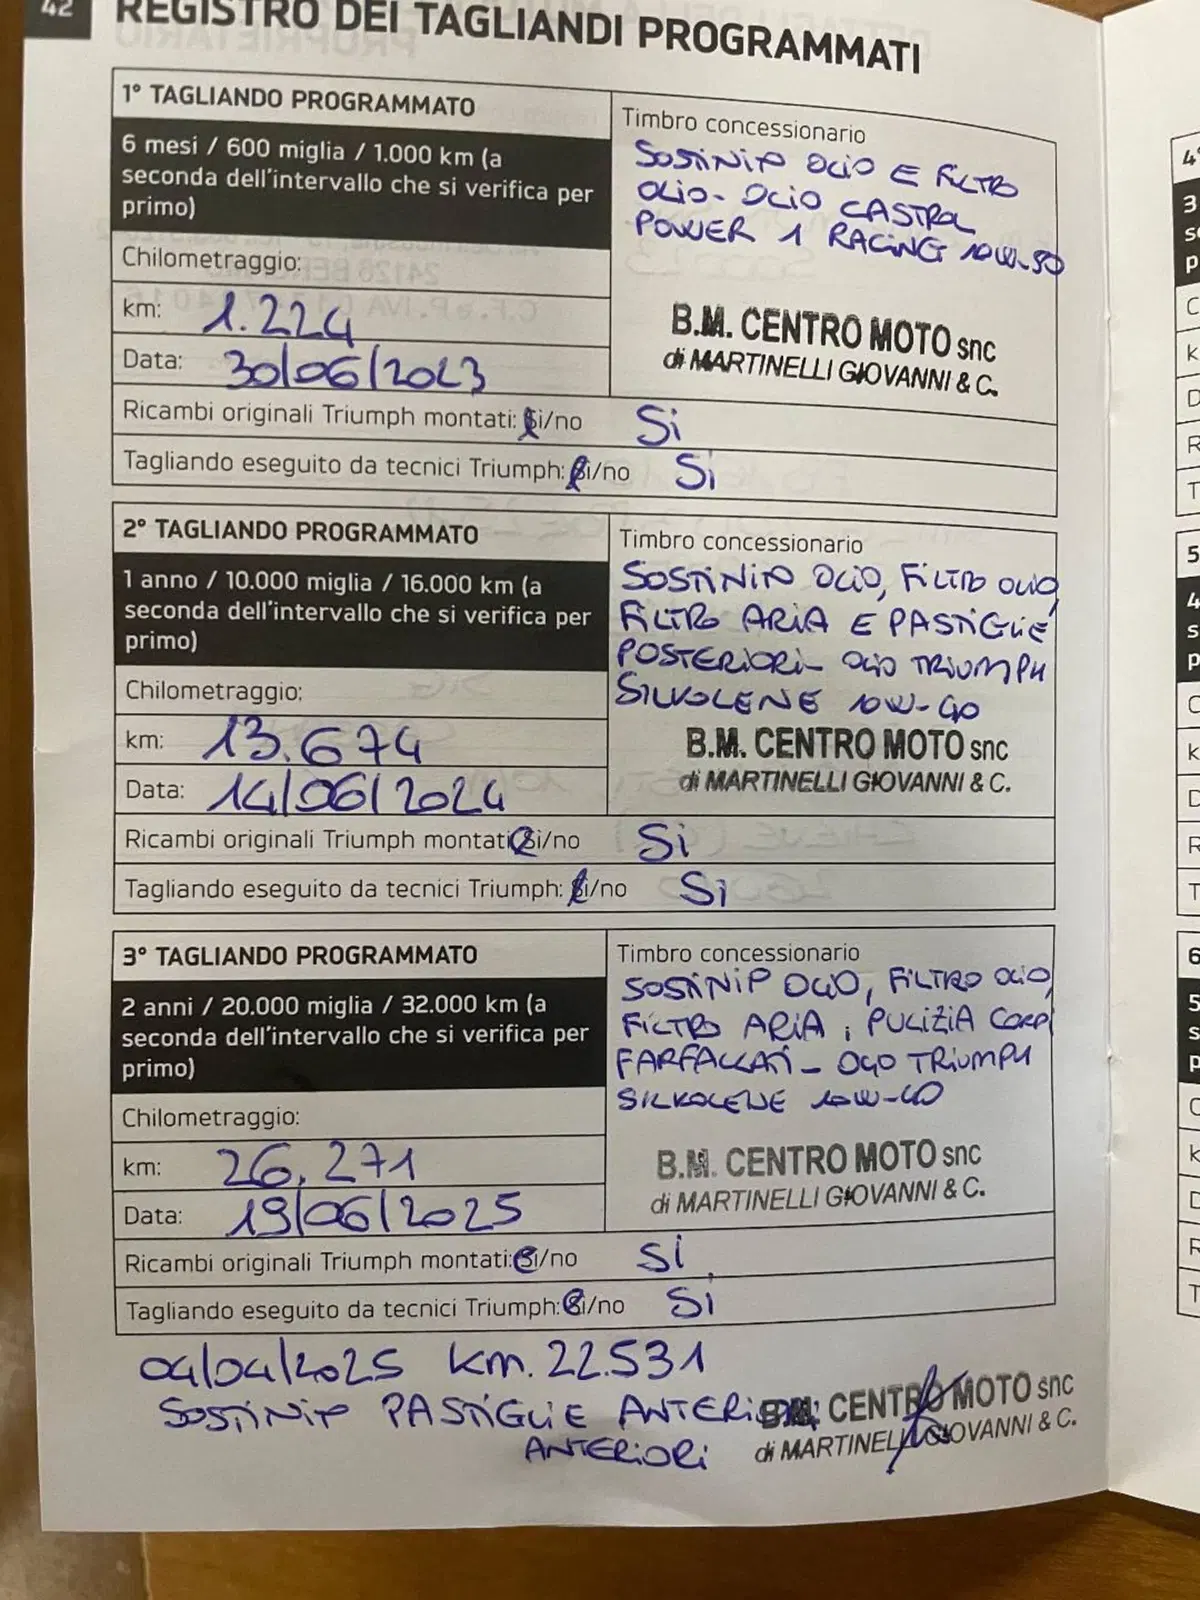 42
REGISTRO DEI TAGLIANDI PROGRAMMATI
1° TAGLIANDO PROGRAMMATO
6 mesi / 600 miglia / 1.000 km (a
seconda dell'intervallo che si verifica per
primo)
Chilometraggio:
km: 1.224
Data: 30/06/2023
Timbro concessionario
SOSTINIP OLIO E FILTRO
OLIO- OLIO CASTROL
POWER 1 RACING 10W-50
B.M. CENTRO MOTO snc
di MARTINELLI GIOVANNI & C.
Ricambi originali Triumph montati: Si/no Si
Tagliando eseguito da tecnici Triumph: Si/no Si
2° TAGLIANDO PROGRAMMATO
1 anno / 10.000 miglia / 16.000 km (a
seconda dell'intervallo che si verifica per
primo)
Chilometraggio:
km: 13.674
Data: 14/06/2024
Timbro concessionario
SOSTINIP OLIO, FILTRO OLIO,
FILTRO ARIA E PASTIGLIE
POSTERIORI- OLIO TRIUMPH
SILKOLENE 10W-40
B.M. CENTRO MOTO snc
di MARTINELLI GIOVANNI & C.
Ricambi originali Triumph montati: Si/no Si
Tagliando eseguito da tecnici Triumph: Si/no Si
3° TAGLIANDO PROGRAMMATO
2 anni / 20.000 miglia / 32.000 km (a
seconda dell'intervallo che si verifica per
primo)
Chilometraggio:
km: 26.271
Data: 19/06/2025
Timbro concessionario
SOSTINIP OLIO, FILTRO OLIO,
FILTRO ARIA, PULIZIA CORPI
FARFALLATI- OLIO TRIUMPH
SILKOLENE 10W-40
B.M. CENTRO MOTO snc
di MARTINELLI GIOVANNI & C.
Ricambi originali Triumph montati: Si/no Si
Tagliando eseguito da tecnici Triumph: Si/no Si
04/04/2025 KM. 22.531
SOSTINIP PASTIGLIE ANTERIORI
ANTERIORI
B.M. CENTRO MOTO snc
di MARTINELLI GIOVANNI & C.